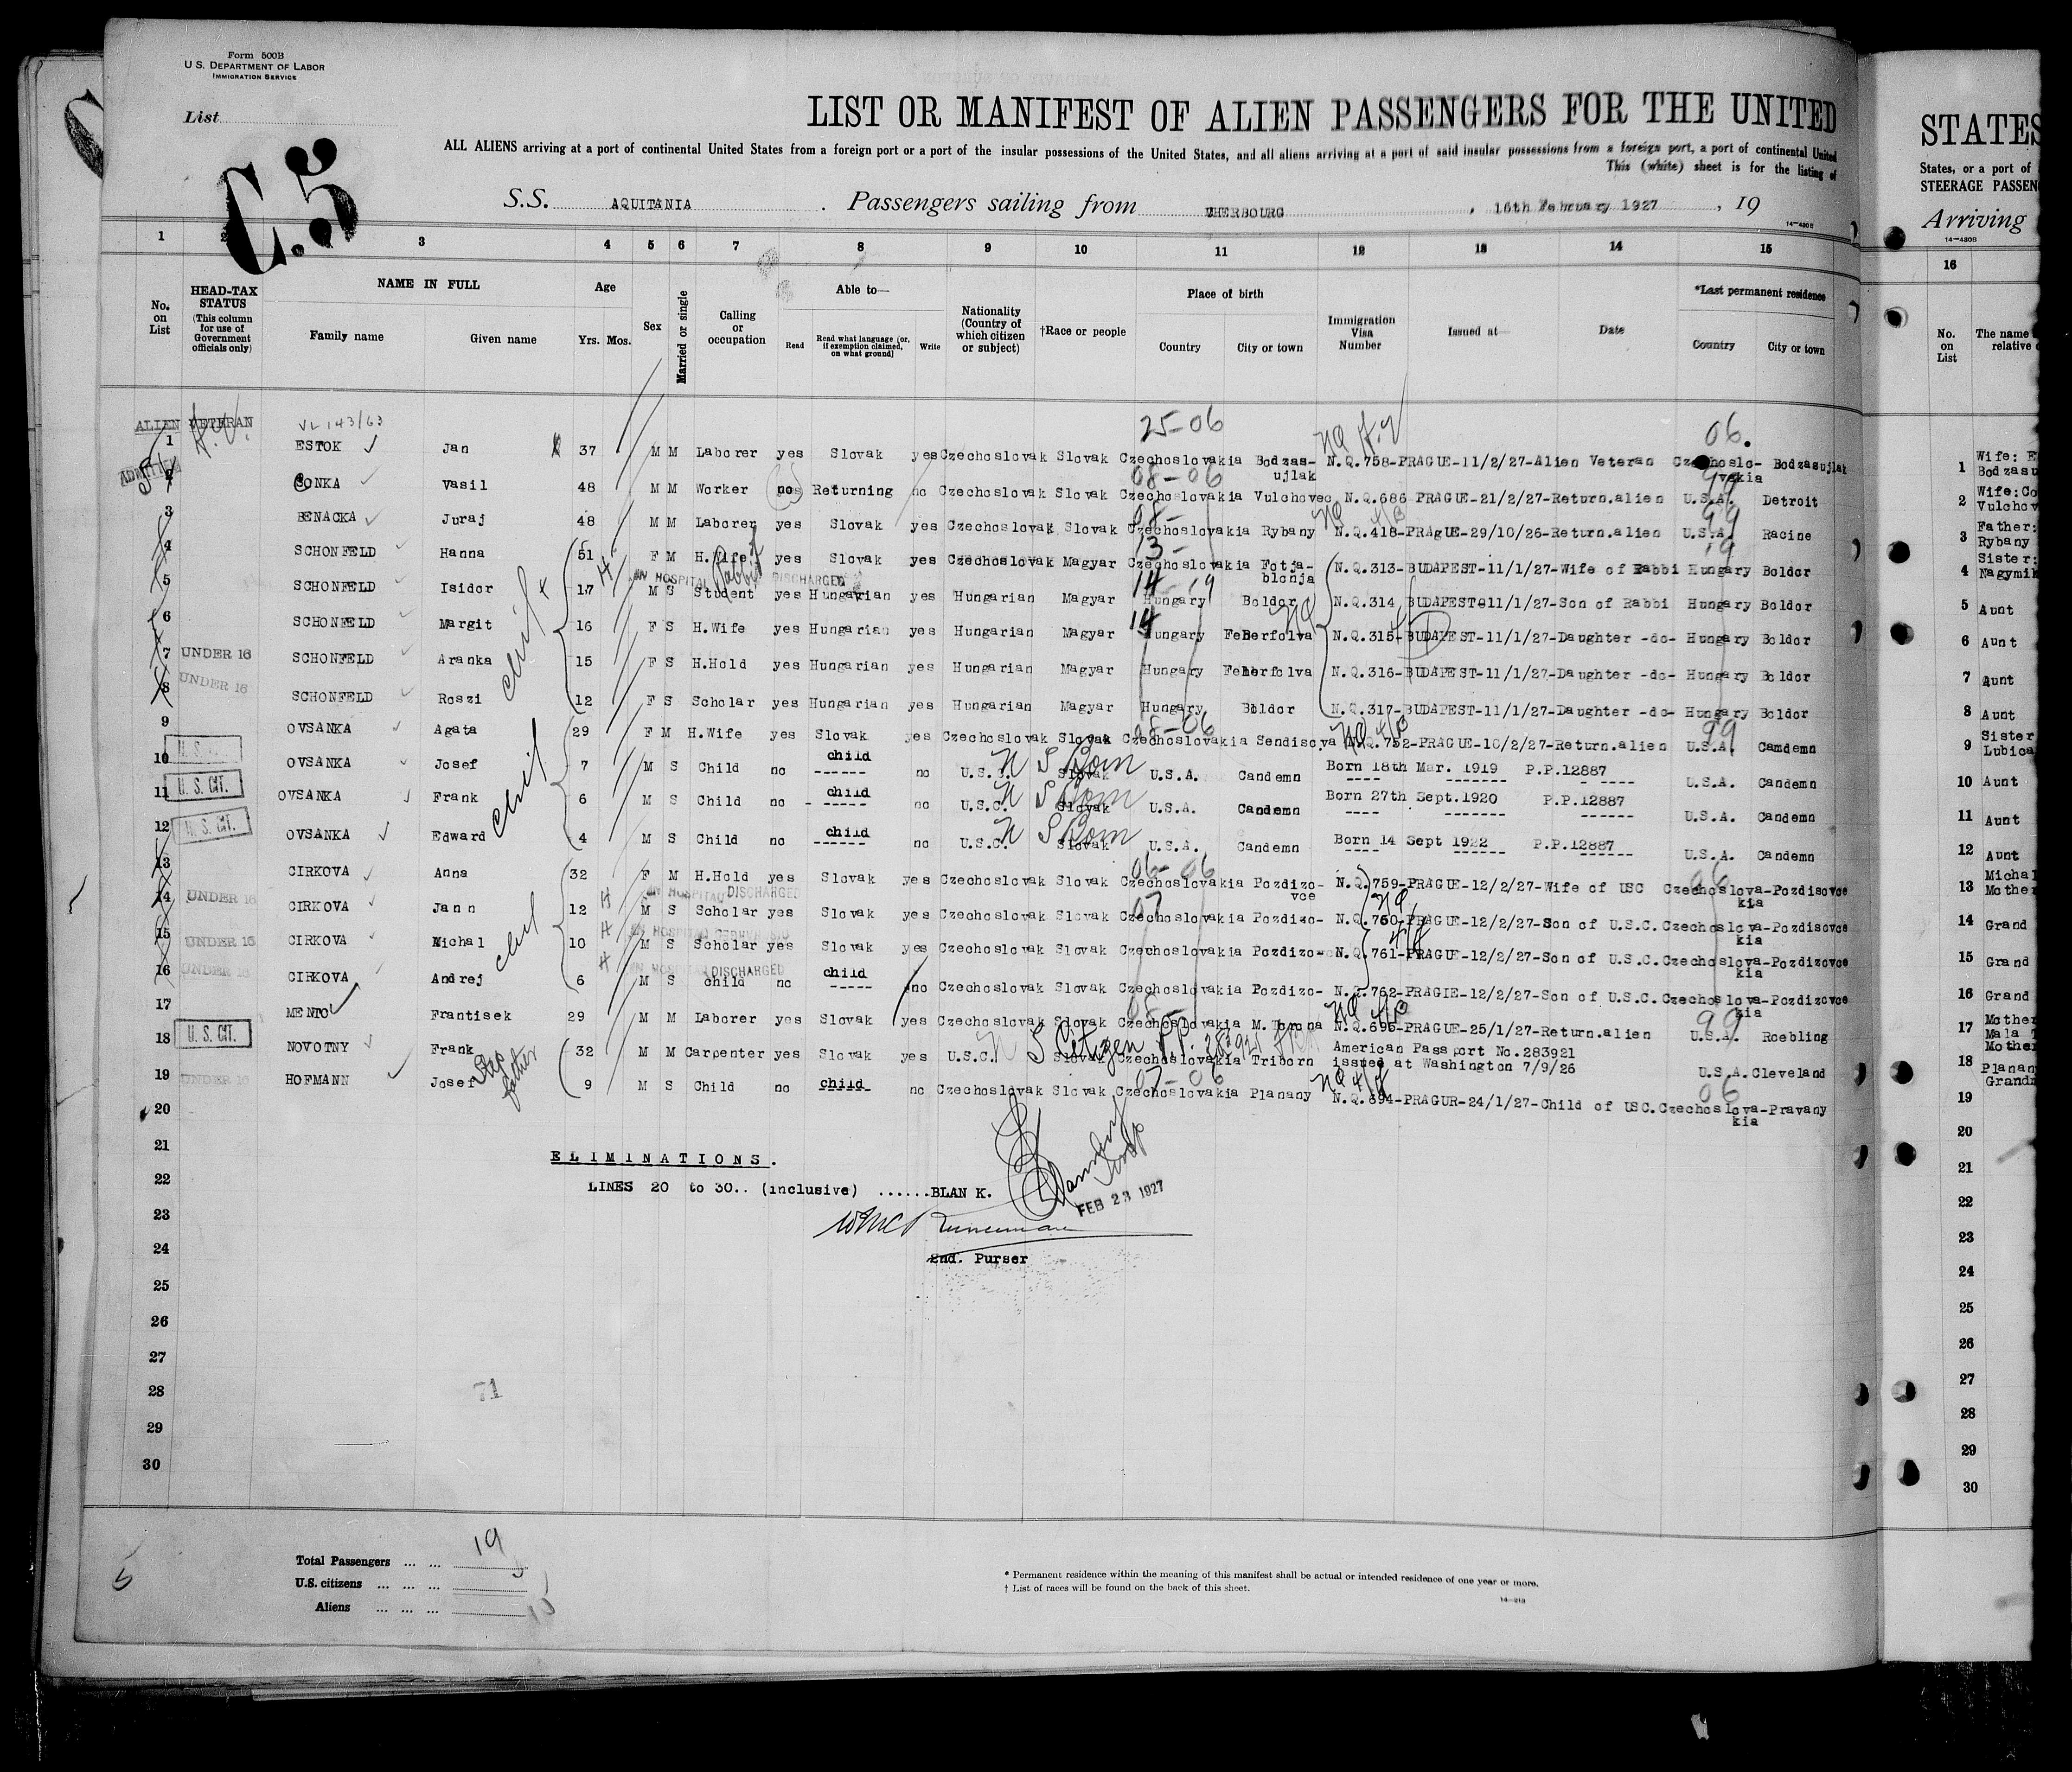 Form 500B
U. S. DEPARTMENT OF LABOR
IMMIGRATION SERVICE
List
C.5
LIST OR MANIFEST OF ALIEN PASSENGERS FOR THE UNITED
ALL ALIENS arriving at a port of continental United States from a foreign port or a port of the insular possessions of the United States, and all aliens arriving at a port of said insular possessions from a foreign port, a port of continental United
This (white) sheet is for the listing of
S.S. AQUITANIA . Passengers sailing from CHERBOURG , 16th February 1927 , 19
14—430B
1 2 3 4 5 6 7 8 9 10 11 12 13 14 15
No. on List
HEAD-TAX STATUS (This column for use of Government officials only)
NAME IN FULL
Family name Given name
Age
Yrs. Mos.
Sex
Married or single
Calling or occupation
Able to—
Read Read what language [or, if exemption claimed, on what ground] Write
Nationality (Country of which citizen or subject)
†Race or people
Place of birth
Country City or town
Immigration Visa Number
Issued at—
Date
*Last permanent residence
Country City or town
ALIEN VETERAN VL 143/63 25-06 06.
1 ESTOK Jan 37 M M Laborer yes Slovak yes Czechoslovak Slovak Czechoslovakia Bodzas-ujlak N.Q.758-PRAGUE-11/2/27-Alien Veteran Czechoslo-vakia Bodzasujlak
ADMITTED
2 CONKA Vasil 48 M M Worker no Returning no Czechoslovak Slovak Czechoslovakia Vulchovec N.Q.686 PRAGUE-21/2/27-Return.alien U.S.A. Detroit
3 BENACKA Juraj 48 M M Laborer yes Slovak yes Czechoslovak Slovak Czechoslovakia Rybany N.Q.418-PRAgUE-29/10/26-Return.alien U.S.A. Racine
4 SCHONFELD Hanna 51 F M H.Wife yes Slovak yes Czechoslovak Magyar Czechoslovakia Fotja-blonja N.Q.313-BUDAPEST-11/1/27-Wife of Rabbi Hungary Boldor
IN HOSPITAL Rabbi DISCHARGED
5 SCHONFELD Isidor 17 M S Student yes Hungarian yes Hungarian Magyar Hungary Boldor N.Q.314 BUDAPEST-11/1/27-Son of Rabbi Hungary Boldor
6 SCHONFELD Margit 16 F S H.Wife yes Hungarian yes Hungarian Magyar Hungary Feherfolva N.Q.315-BUDAPEST-11/1/27-Daughter -do- Hungary Boldor
7 UNDER 16 SCHONFELD Aranka 15 F S H.Hold yes Hungarian yes Hungarian Magyar Hungary Feherfolva N.Q.316-BUDAPEST-11/1/27-Daughter -do- Hungary Boldor
8 UNDER 16 SCHONFELD Roszi 12 F S Scholar yes Hungarian yes Hungarian Magyar Hungary Boldor N.Q.317-BUDAPEST-11/1/27-Daughter -do- Hungary Boldor
9 OVSANKA Agata 29 F M H.Wife yes Slovak yes Czechoslovak Slovak Czechoslovakia Sendisova N.Q.752-PRAGUE-10/2/27-Return.alien U.S.A. Camdemn
10 OVSANKA Josef 7 M S Child no child ------ no U.S.C. Slovak U.S.A. Candemn Born 18th Mar. 1919 P.P.12887 U.S.A. Candemn
11 U. S. CIT. OVSANKA Frank 6 M S Child no child ------ no U.S.C. Slovak U.S.A. Candemn Born 27th Sept.1920 P.P.12887 U.S.A. Candemn
12 U. S. CIT. OVSANKA Edward 4 M S Child no child ------ no U.S.C. Slovak U.S.A. Candemn Born 14 Sept 1922 P.P.12887 U.S.A. Candemn
13 CIRKOVA Anna 32 F M H.Hold yes Slovak yes Czechoslovak Slovak Czechoslovakia Pozdizo-vce N.Q.759-PRAGUE-12/2/27-Wife of USC Czechoslova-kia Pozdisovce
IN HOSPITAL DISCHARGED
14 UNDER 16 CIRKOVA Jann 12 M S Scholar yes Slovak yes Czechoslovak Slovak Czechoslovakia Pozdizo- N.Q.760-PRAGUE-12/2/27-Son of U.S.C. Czechoslova-kia Pozdisovce
15 UNDER 16 CIRKOVA Michal 10 M S Scholar yes Slovak yes Czechoslovak Slovak Czechoslovakia Pozdizo- N.Q.761-PRAGUE-12/2/27-Son of U.S.C. Czechoslova-kia Pozdizovce
IN HOSPITAL DISCHARGED
16 UNDER 16 CIRKOVA Andrej 6 M S child no child ----- no Czechoslovak Slovak Czechoslovakia Pozdizo- N.Q.762-PRAGIE-12/2/27-Son of U.S.C. Czechoslova-kia Pozdizovce
17 MENTO Frantisek 29 M M Laborer yes Slovak yes Czechoslovak Slovak Czechoslovakia M. Torona N.Q.695-PRAGUE-25/1/27-Return.alien U.S.A. Roebling
18 U. S. CIT. NOVOTNY Frank 32 M M Carpenter yes Slovak yes U.S.C. Slovak Czechoslovakia Triborn American Passport No.283921 issued at Washington 7/9/26 U.S.A. Cleveland
Step father
19 UNDER 16 HOFMANN Josef 9 M S Child no child no Czechoslovak Slovak Czechoslovakia Planany N.Q.694-PRAGUR-24/1/27-Child of USC. Czechoslova-kia Pravany
20
21
ELIMINATIONS.
22 LINES 20 to 30.. (inclusive) ......BLANK.
FEB 23 1927
23
24 2nd. Purser
25
26
27
28 71
29
30
Total Passengers ... ... 19
U.S. citizens ... ... ...
Aliens ... ... ...
* Permanent residence within the meaning of this manifest shall be actual or intended residence of one year or more.
† List of races will be found on the back of this sheet.
14—213
STATES
States, or a port of
STEERAGE PASSEN
Arriving
14—430B
16
No. on List
The name
relative
1 Wife: E
Bodzasu
2 Wife:Co
Vulchov
3 Father:
Rybany
4 Sister:
Nagymih
5 Aunt
6 Aunt
7 Aunt
8 Aunt
9 Sister
Lubica
10 Aunt
11 Aunt
12 Aunt
13 Michal
Mother
14 Grand
15 Grand
16 Grand
17 Mother
Mala T
18 Mother
Planany
19 Grandm
20
21
22
23
24
25
26
27
28
29
30